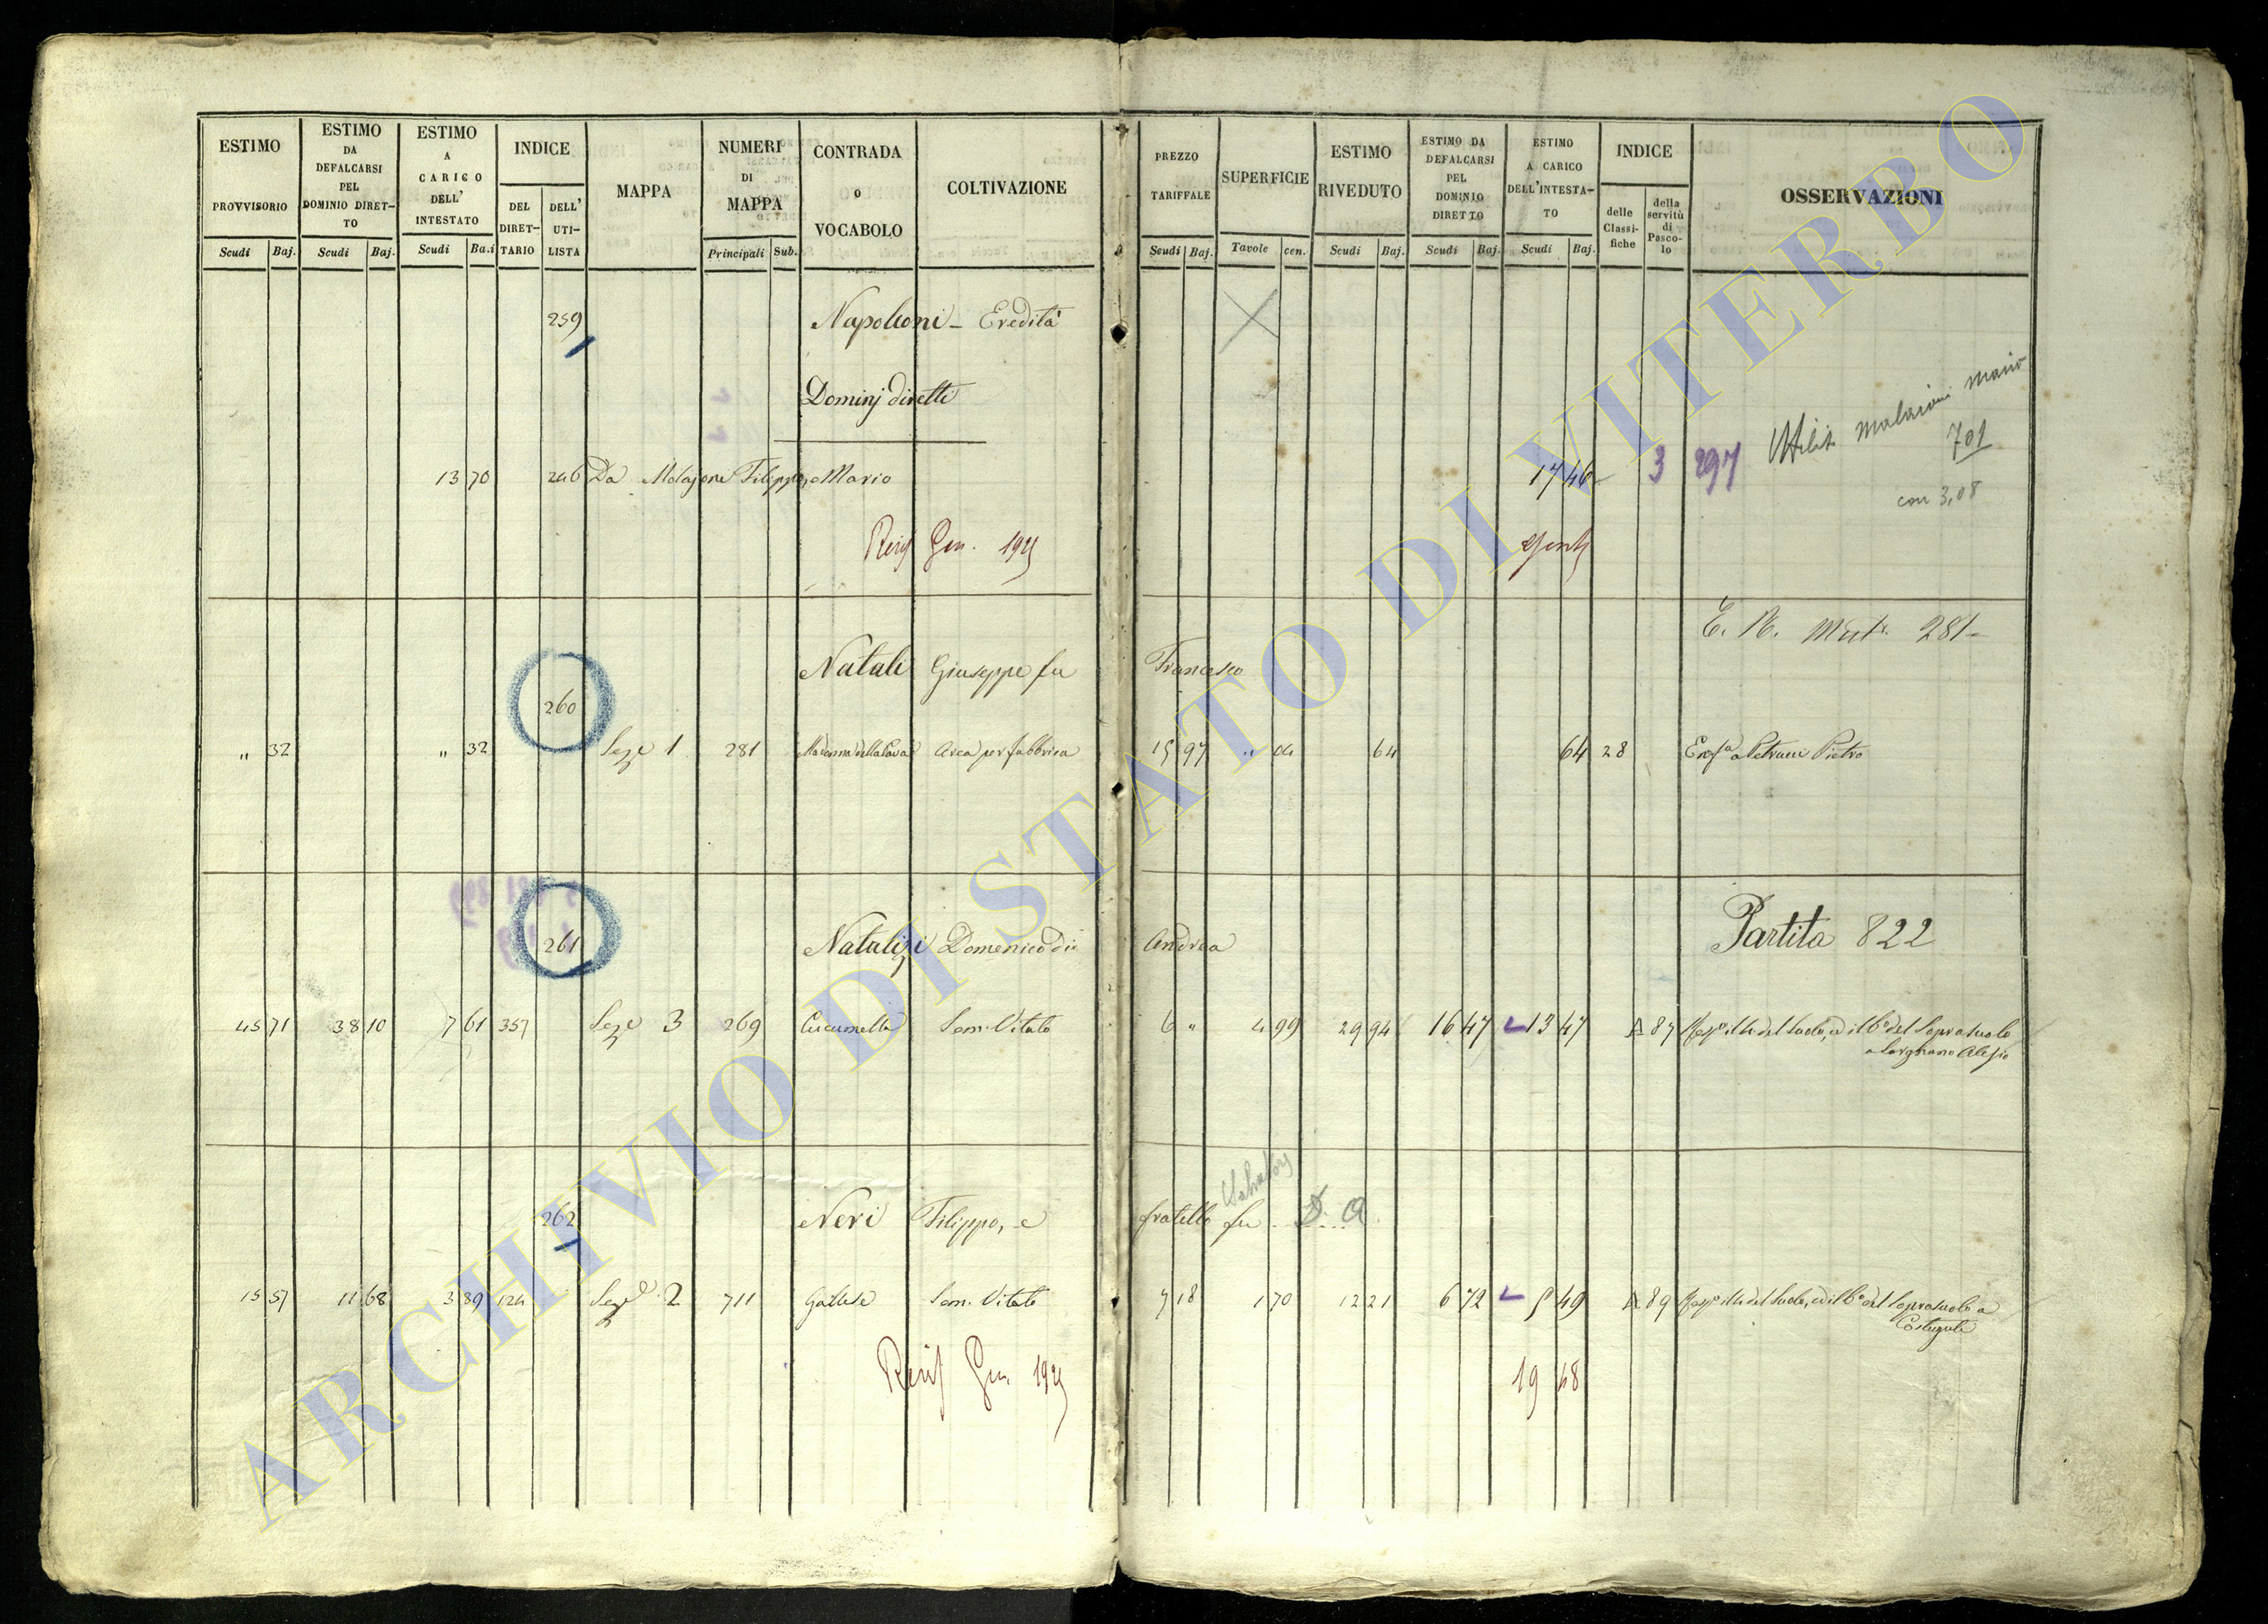 ESTIMO PROVVISORIO
Scudi Baj.
ESTIMO DA DEFALCARSI PEL DOMINIO DIRET-TO
Scudi Baj.
ESTIMO A CARICO DELL' INTESTATO
Scudi Ba.i
INDICE
DEL DIRET-TARIO
DELL' UTI-LISTA
MAPPA
NUMERI DI MAPPA
Principali Sub.
CONTRADA o VOCABOLO
COLTIVAZIONE
PREZZO TARIFFALE
Scudi Baj.
SUPERFICIE
Tavole cen.
ESTIMO RIVEDUTO
Scudi Baj.
ESTIMO DA DEFALCARSI PEL DOMINIO DIRETTO
Scudi Baj.
ESTIMO A CARICO DELL'INTESTA-TO
Scudi Baj.
INDICE
delle Classi-fiche
della servitù di Pasco-lo
OSSERVAZIONI
259 Napoleoni - Eredità
Dominj diretti
13 70 246 Da Molajoni Filippo, Mario 17 46 3 297
701
con 3,08
Gen. 192
E. R. 281
Natale Giuseppe fu Francesco
260
" 32 " 32 Seze 1 281 Area per fabbrica 15 97 " 04 64 64 28 a Petrucci Pietro
Partita 822
261 Natalizi Domenico di Andrea
45 71 38 10 7 61 357 Seze 3 269 Cucumella Sem. Vitato 6 " 4 99 29 94 16 47 13 47 A 87 del Suolo, ed il del Soprasuolo
a
Salvatore
262 Neri Filippo, e fratello fu
15 57 11 68 3 89 124 Seze 2 711 Gallese Sem. Vitato 7 18 1 70 12 21 6 72 5 49 A 89 del Suolo, ed il del Soprasuolo a
Gen. 192 19 48
ARCHIVIO DI STATO DI VITERBO